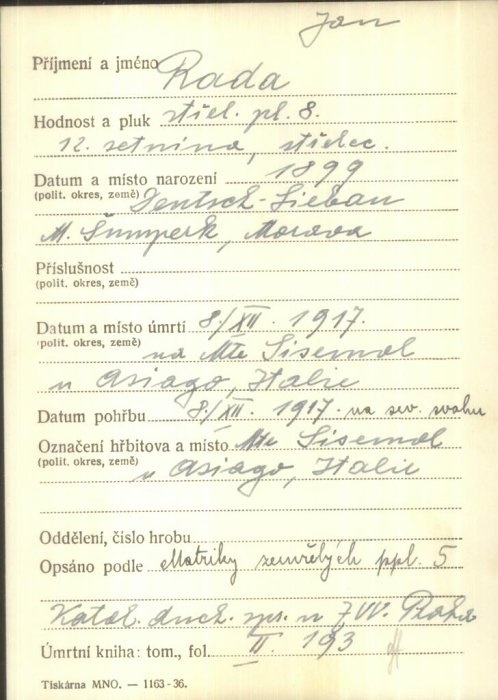 Jan
Příjmení a jméno Rada
Hodnost a pluk střel. pl. 8.
12. setnina, střelec.
Datum a místo narození 1899
(polit. okres, země) Deutsch-Lieban
M. Šumperk, Morava
Příslušnost
(polit. okres, země)
Datum a místo úmrtí 8/XII. 1917.
(polit. okres, země) na Mte Sisemol
u Asiago, Italie
Datum pohřbu 8./XII. 1917 na sev. svahu
Označení hřbitova a místo Mte Sisemol
(polit. okres, země) u Asiago, Italie
Oddělení, číslo hrobu
Opsáno podle Matriky zemřelých ppl. 5
Katol. duch. spr. u ZVV. Praha
Úmrtní kniha: tom., fol. II. 193
Tiskárna MNO. — 1163-36.